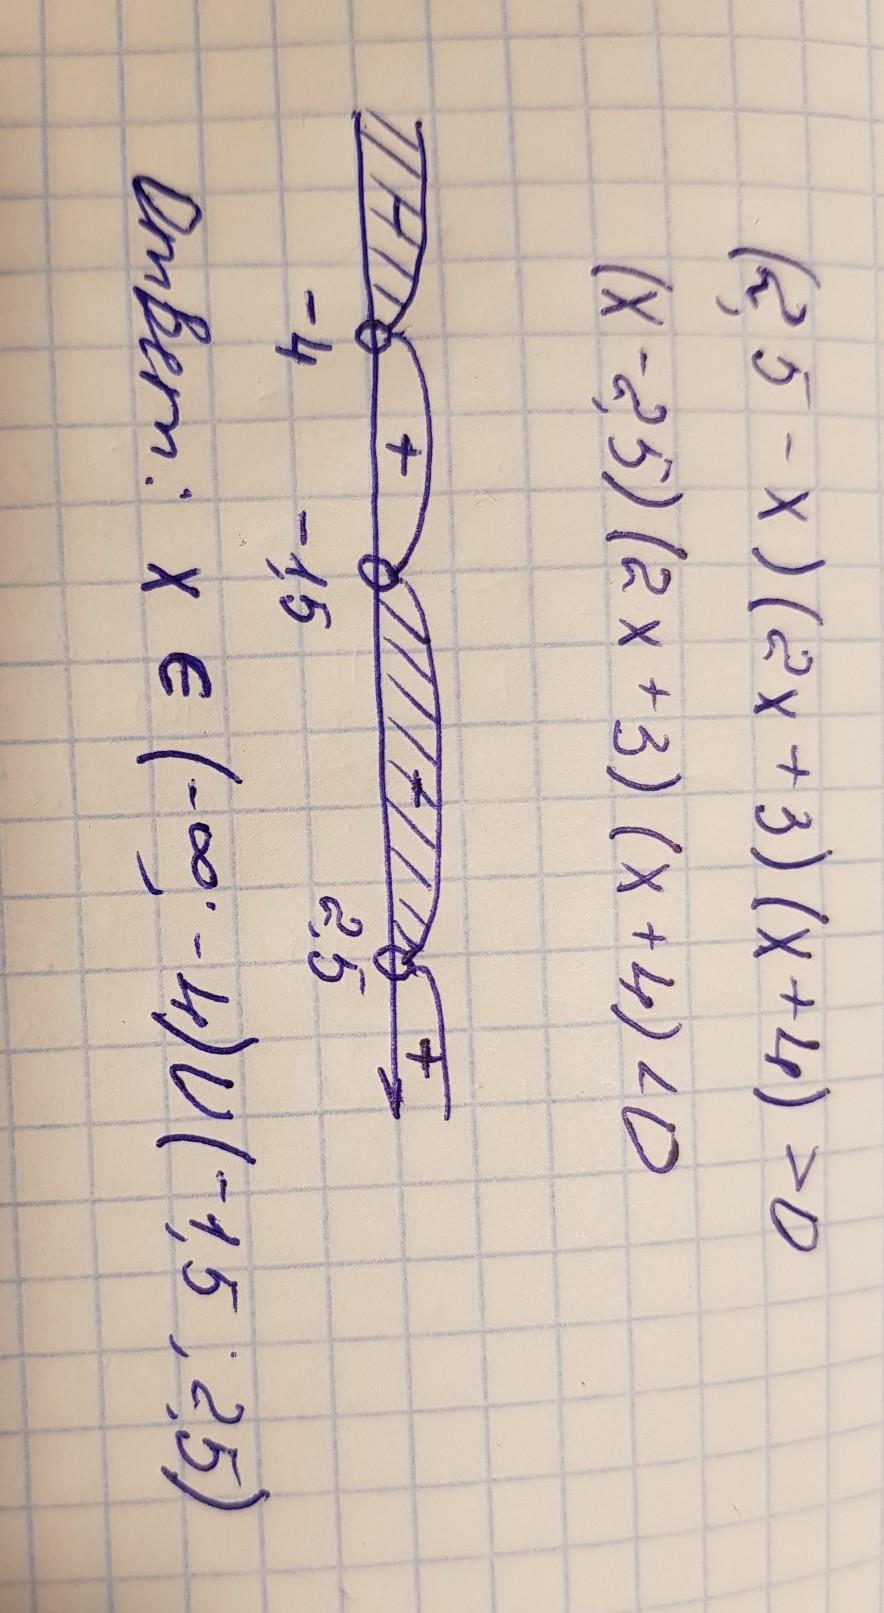 (2,5 - x)(2x + 3)(x + 4) > 0
(x - 2,5)(2x + 3)(x + 4) < 0
+ +
-4 -1,5 2,5
Ответ: x ∈ (-∞; -4) ∪ (-1,5 ; 2,5)